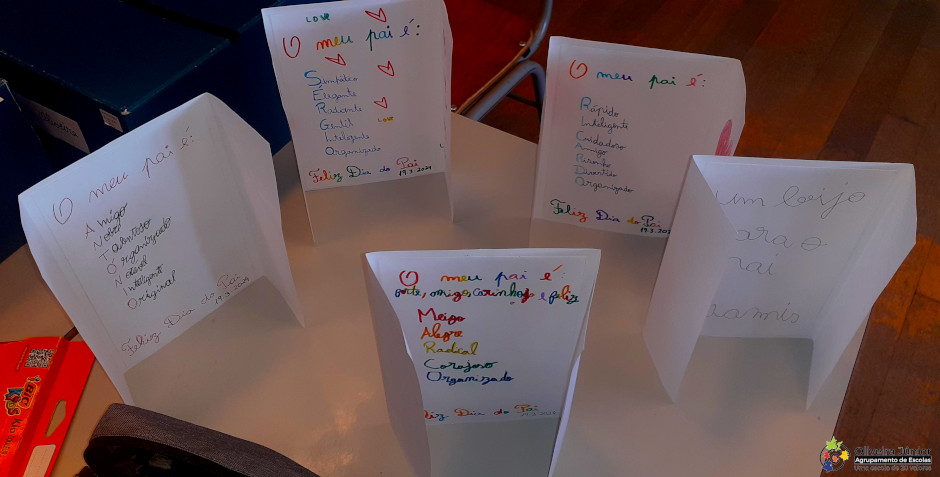 O meu pai é:
Amigo
Nobre
Talentoso
Organizado
Notável
Inteligente
Original
Feliz Dia do Pai
19.3.2024
LOVE
O meu pai é:
Simpático
Elegante
Radiante
Gentil
LOVE
Inteligente
Organizado
Feliz Dia do Pai
19.3.2024
O meu pai é:
Rápido
Inteligente
Cuidadoso
Amigo
Risonho
Divertido
Organizado
Feliz Dia do Pai
O meu pai é:
forte, amigo, carinhoso e feliz
Meigo
Alegre
Radical
Corajoso
Organizado
Feliz Dia do Pai
19.3.2024
um beijo
para o
pai
BIG
KIDS
Oliveira Júnior
Agrupamento de Escolas
Uma escola de 20 valores